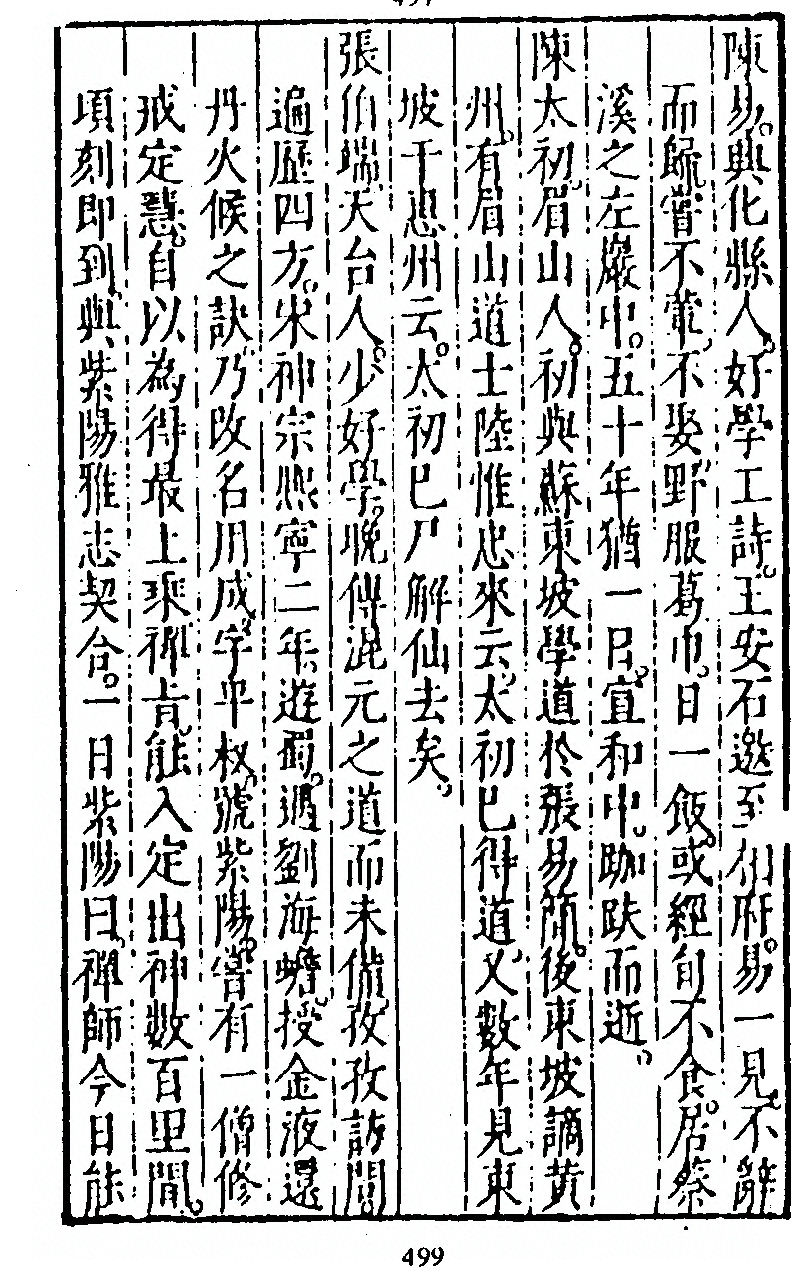 陳易。興化縣人。好學工詩。王安石邀至相府。易一見。不辭
而歸。嘗不葷。不娶。野服葛巾。日一飯。或經旬不食。居蔡
溪之左巖中。五十年猶一日。宣和中。跏趺而逝。
陳太初。眉山人。初與蘇東坡學道於張易簡。後東坡謫黃
州。有眉山道士陸惟忠來云。太初已得道。又數年見東
坡于惠州云。太初已尸解仙去矣。
張伯端。天台人。少好學。晚傳混元之道而未備。孜孜訪問
遍歷四方。宋神宗熙寧二年。遊蜀。遇劉海蟾。授金液還
丹火候之訣。乃改名用成。字平叔。號紫陽。嘗有一僧修
戒定慧。自以為得最上乘禪旨。能入定出神。數百里間。
頃刻即到。與紫陽雅志契合。一日紫陽曰。禪師今日能
499